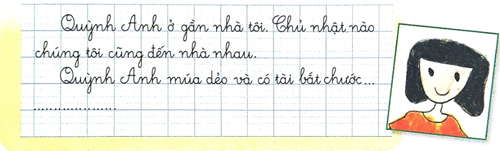 Quỳnh Anh ở gần nhà tôi. Chủ nhật nào
chúng tôi cũng đến nhà nhau.
Quỳnh Anh múa dẻo và có tài bắt chước...
....................